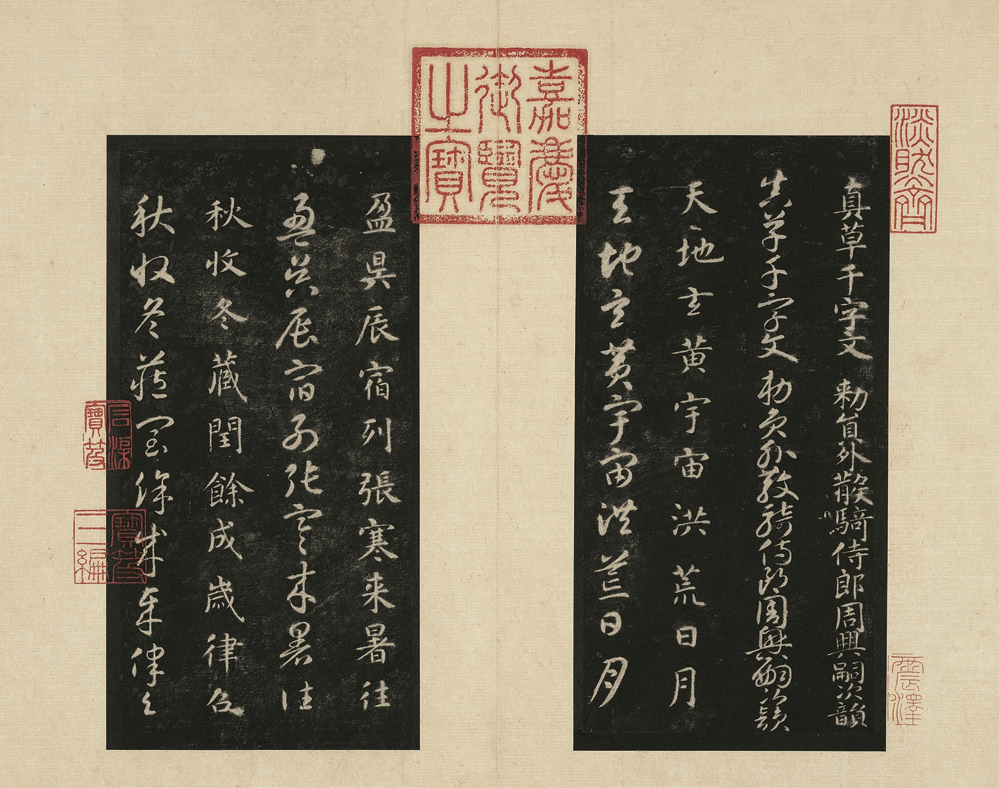 真草千字文 勑員外散騎侍郎周興嗣次韻
真草千字文 勑員外散騎侍郎周興嗣次韻
天地玄黃宇宙洪荒日月
天地玄黃宇宙洪荒日月
盈昃辰宿列張寒来暑往
盈昃辰宿列張寒来暑往
秋收冬藏閏餘成歲律呂
秋收冬藏閏餘成歲律呂
嘉慶御覽之寶
淡眎齋
震澤
石渠寶笈
寶笈三編